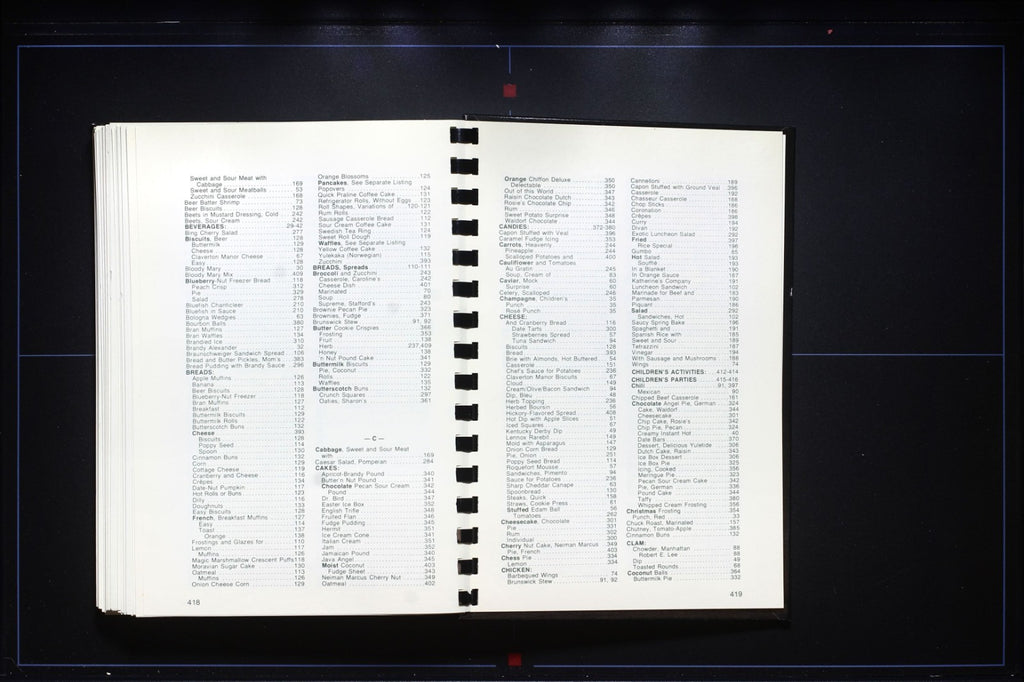 Sweet and Sour Meat with
Cabbage 169
Sweet and Sour Meatballs 53
Zucchini Casserole 168
Beer Batter Shrimp 73
Beer Biscuits 128
Beets in Mustard Dressing, Cold 242
Beets, Sour Cream 242
BEVERAGES: 29-42
Bing Cherry Salad 277
Biscuits, Beer 128
Buttermilk 129
Cheese 128
Claverton Manor Cheese 67
Easy 128
Bloody Mary 30
Bloody Mary Mix 409
Blueberry-Nut Freezer Bread 118
Peach Crisp 312
Pie 329
Salad 278
Bluefish Chanticleer 210
Bluefish in Sauce 210
Bologna Wedges 63
Bourbon Balls 380
Bran Muffins 127
Bran Waffles 134
Brandied Ice 310
Brandy Alexander 32
Braunschweiger Sandwich Spread 106
Bread and Butter Pickles, Mom's 383
Bread Pudding with Brandy Sauce 296
BREADS:
Apple Muffins 126
Banana 113
Beer Biscuits 128
Blueberry-Nut Freezer 118
Bran Muffins 127
Breakfast 112
Buttermilk Biscuits 129
Buttermilk Rolls 122
Butterscotch Buns 132
Cheese 393
Biscuits 128
Poppy Seed 114
Spoon 130
Cinnamon Buns 132
Corn 129
Cottage Cheese 119
Cranberry and Cheese 116
Crêpes 134
Date-Nut Pumpkin 117
Hot Rolls or Buns 123
Dilly 116
Doughnuts 133
Easy Biscuits 128
French, Breakfast Muffins 127
Easy 114
Toast 137
Orange 138
Frostings and Glazes for 110
Lemon 117
Muffins 126
Magic Marshmallow Crescent Puffs 118
Moravian Sugar Cake 130
Oatmeal 113
Muffins 126
Onion Cheese Corn 129
418
Orange Blossoms 125
Pancakes, See Separate Listing
Popovers 124
Quick Praline Coffee Cake 131
Refrigerator Rolls, Without Eggs 123
Roll Shapes, Variations of 120-121
Rum Rolls 122
Sausage Casserole Bread 112
Sour Cream Coffee Cake 131
Swedish Tea Ring 124
Sweet Roll Dough 119
Waffles, See Separate Listing
Yellow Coffee Cake 132
Yulekaka (Norwegian) 115
Zucchini 393
BREADS, Spreads 110-111
Broccoli and Zucchini 243
Casserole, Caroline's 242
Cheese Dish 401
Marinated 70
Soup 80
Supreme, Stafford's 243
Brownie Pecan Pie 323
Brownies, Fudge 371
Brunswick Stew 91, 92
Butter Cookie Crispies 366
Frosting 353
Fruit 138
Herb 237,409
Honey 138
'n Nut Pound Cake 341
Buttermilk Biscuits 129
Pie, Coconut 332
Rolls 122
Waffles 135
Butterscotch Buns 132
Crunch Squares 297
Oaties, Sharon's 361
— C —
Cabbage, Sweet and Sour Meat
with 169
Caesar Salad, Pompeian 284
CAKES:
Apricot-Brandy Pound 340
Butter'n Nut Pound 341
Chocolate Pecan Sour Cream 342
Pound 344
Dr. Bird 347
Easter Ice Box 352
English Trifle 348
Frutted Flan 346
Fudge Pudding 345
Hermit 351
Ice Cream Cone 341
Italian Cream 351
Jam 352
Jamaican Pound 340
Java Angel 345
Moist Coconut 403
Fudge Sheet 343
Neiman Marcus Cherry Nut 349
Oatmeal 402
Orange Chiffon Deluxe 350
Delectable 350
Out of this World 347
Raisin Chocolate Dutch 343
Rosie's Chocolate Chip 342
Rum 346
Sweet Potato Surprise 348
Waldorf Chocolate 344
CANDIES: 372-380
Capon Stuffed with Veal 396
Caramel Fudge Icing 353
Carrots, Heavenly 244
Pineapple 244
Scalloped Potatoes and 400
Cauliflower and Tomatoes
Au Gratin 245
Soup, Cream of 83
Caviar, Mock 60
Surprise 60
Celery, Scalloped 246
Champagne, Children's 35
Punch 35
Rosé Punch 35
CHEESE:
And Cranberry Bread 116
Date Tarts 300
Strawberries Spread 57
Tuna Sandwich 94
Biscuits 128
Bread 393
Brie with Almonds, Hot Buttered 54
Casserole 151
Chef's Sauce for Potatoes 236
Claverton Manor Biscuits 67
Cloud 149
Cream/Olive/Bacon Sandwich 94
Dip, Bleu 48
Herb Topping 236
Herbed Boursin 56
Hickory-Flavored Spread 408
Hot Dip with Apple Slices 51
Iced Squares 67
Kentucky Derby Dip 49
Lennox Rarebit 149
Mold with Asparagus 147
Onion Corn Bread 129
Pie, Onion 251
Poppy Seed Bread 114
Roquefort Mousse 57
Sandwiches, Pimento 94
Sauce for Potatoes 236
Sharp Cheddar Canape 63
Spoonbread 130
Steaks, Quick 158
Straws, Cookie Press 61
Stuffed Edam Ball 56
Tomatoes 262
Cheesecake, Chocolate 301
Pie 331
Rum 302
Individual 300
Cherry Nut Cake, Neiman Marcus 349
Pie, French 403
Chess Pie 334
Lemon 334
CHICKEN:
Barbequed Wings 74
Brunswick Stew 91, 92
Cannelloni 189
Capon Stuffed with Ground Veal 396
Casserole 192
Chasseur Casserole 188
Chop Sticks 186
Coronation 186
Crêpes 398
Curry 194
Divan 192
Exotic Luncheon Salad 292
Fried 397
Rice Special 196
Gumbo 85
Hot Salad 193
Soufflé 193
In a Blanket 190
In Orange Sauce 187
Katherine's Company 191
Luncheon Sandwich 102
Marinade for Beef and 183
Parmesan 190
Piquant 186
Salad 292
Sandwiches, Hot 102
Saucy Spring Bake 196
Spaghetti and 191
Spanish Rice with 185
Sweet and Sour 189
Tetrazzini 187
Vinegar 194
With Sausage and Mushrooms 188
Wings 74
CHILDREN'S ACTIVITIES: 412-414
CHILDREN'S PARTIES 415-416
Chili 91, 397
Mexican 90
Chipped Beef Casserole 161
Chocolate Angel Pie, German 324
Cake, Waldorf 344
Cheesecake 301
Chip Cake, Rosie's 342
Chip Pie, Pecan 324
Creamy Instant Hot 40
Date Bars 370
Dessert, Delicious Yuletide 306
Dutch Cake, Raisin 343
Ice Box Dessert 306
Ice Box Pie 325
Icing, Cooked 356
Meringue Pie 323
Pecan Sour Cream Cake 342
Pie, German 336
Pound Cake 344
Taffy 380
Whipped Cream Frosting 356
Christmas Frosting 354
Punch, Red 33
Chuck Roast, Marinated 157
Chutney, Tomato Apple 385
Cinnamon Buns 132
CLAM:
Chowder, Manhattan 88
Robert E. Lee 88
Dip 49
Toasted Rounds 68
Coconut Balls 364
Buttermilk Pie 332
419